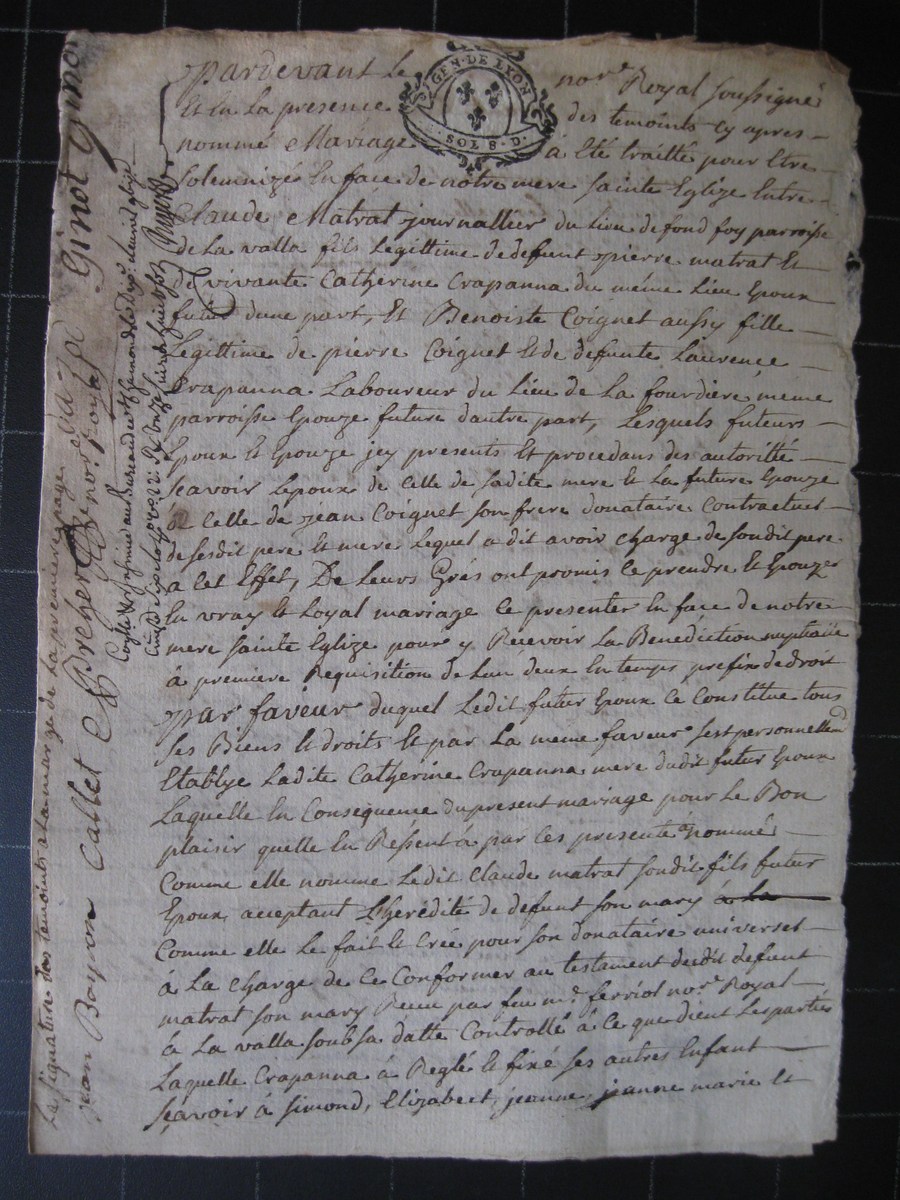 pardevant le nore Royal soussigné
Et en la presence des temoints cy apres
nommé Mariage à été traitté pour Etre
GEN. DE LYON
SOLS D.
solemnizé En face de notre mere sainte Eglize Entre
Claude Matrat journallier du lieu de fond foy parroisse
de La valla fils Legittime de defunt pierre matrat Et
de vivante Catherine Crapanna du méme Lieu Epoux
futur dune part, Et Benoiste Coignet aussy fille
Legittime de pierre Coignet Et de defunte Laurence
Crapanna Laboureur du Lieu de La fourdiere meme
parroisse Epouze future dautre part, Lesquels futeurs
Epoux Et Epouze jcy presents Et procedans des autoritté
sçavoir Lepoux de Celle de sadite mere Et La future Epouze
de Celle de jean Coignet son frere donataire Contractuel
de sesdit pere Et mere Lequel a dit avoir charge de sondit pere
a Cet Effet, De Leurs Grés ont promis Ce prendre Et Epouzer
En vray Et Loyal mariage Ce presenter En face de notre
mere sainte Eglize pour y Recevoir La Benediction nuptialle
à premiere Requisition de Lun deux En temps prefix de droit
par faveur duquel Ledit futur Epoux Ce Constitue tous
ses Biens Et droits Et par La meme faveur sest personnellemt
Etablye Ladite Catherine Crapanna mere dudit futur Epoux
Laquelle En Consequence du present mariage pour Le Bon
plaisir quelle En Ressent à par Ces presente nommé
Comme elle nomme Ledit Claude matrat sondit fils futur
Epoux acceptant Lherédité de defunt son mary
Comme elle Le fait Et Crée pour son donataire universel
à La Charge de Ce Conformer au testament dudit defunt
matrat son mary Receu par feu me ferriol nore Royal
à La valla soub sa datte Controllé à Ce que dient Les partiés
Laquelle Crapanna à Reglé Et fixé ses autres Enfant
sçavoir à simond, Elizabect, jeanne, jeanne marie Et
La signature des temoints a La marge de La premiere page
jean Boyron Callet Preher
Benoit
Ginot Ginot